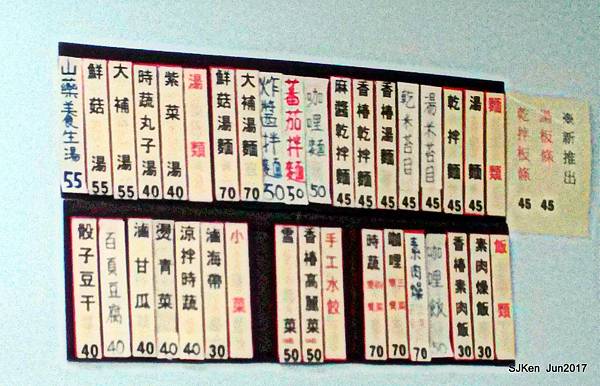 ※新推出
湯板條 45
乾拌板條 45
麵類
湯麵 45
乾拌麵 45
湯米苔目 45
乾米苔目 45
香椿湯麵 45
香椿乾拌麵 45
麻醬乾拌麵 45
咖哩麵 50
蕃茄拌麵 50
炸醬拌麵 50
大補湯麵 70
鮮菇湯麵 70
湯類
紫菜湯 40
時蔬丸子湯 40
大補湯 55
鮮菇湯 55
山藥養生湯 55
飯類
素肉燥飯 30
香椿素肉飯 30
咖哩餃 50
素肉燥 70
咖哩 70
時蔬 70
手工水餃
香椿高麗菜 50
雪菜 50
小菜
滷海帶 30
涼拌時蔬 40
燙青菜 40
滷甘瓜 40
百頁豆腐 40
骰子豆干 40
SJKen Jun2017